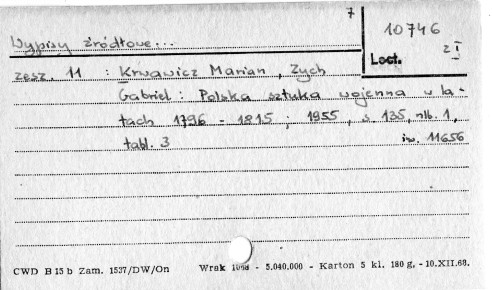 7
10746
Wypisy źródłowe...
Loct.
2 I
zesz. 11 : Krwawicz Marian, Zych
Gabriel: Polska sztuka wojenna w la-
tach 1796 - 1815 ; 1955, s. 135, nlb. 1,
tabl. 3
inw. 11656
CWD B 15 b Zam. 1537/DW/On Wrak - 5.040.000 - Karton 5 kl. 180 g. - 10.XII.68.